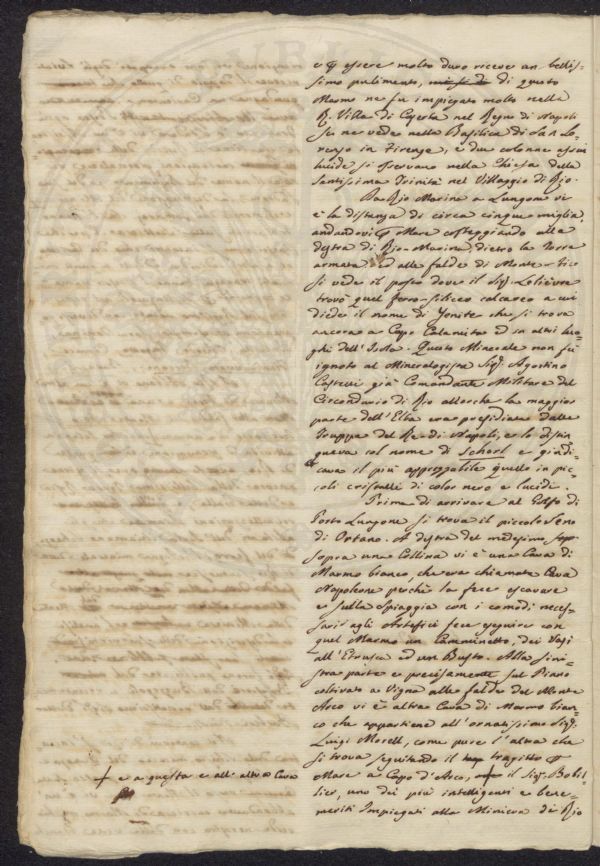 e p essere molto duro riceve un bellis-
simo pulimento, di questo
Marmo ne fu impiegato molto nella
R. Villa di Caserta nel Regno di Napoli
se ne vede nella Basilica di San Lo-
renzo in Firenze, e due colonne assai
lucide si osservano nella Chiesa della
Santissima Trinità nel Villaggio di Rio.
Da Rio Marina a Lungone vi
è la distanza di circa cinque miglia,
andandovi p Mare costeggiando alla
destra di Rio-Marina, dietro la Torre
armata, ed alle falde di Monte-Fico
si vede il posto dove il Sig. Lelièvre
trovò quel ferro-siliceo calcareo a cui
diede il nome di Jenite che si trova
ancora a Capo Calamita ed in altri luo-
ghi dell'Isola. Questo Minerale non fù
ignoto al Mineralogista Sig. Agostino
Castelli già Comandante Militare del
Circondario di Rio allorchè la maggior
parte dell'Elba era presidiata dalle
Truppe del Re di Napoli, e lo distin
gueva col nome di Scherl e giudi-
cava il più apprezzabile quello in pic-
coli cristalli di color nero e lucidi.
Prima di arrivare al Golfo di
Porto Lungone si trova il piccolo Seno
di Ortano. A destra del medesimo,
sopra una Collina vi è una Cava di
Marmo bianco, che era chiamata Cava
Napoleone perchè la fece escavare
e sulla Spiaggia con i comodi neces-
sarj agli Artefici fece eseguire con
quel Marmo un Camminetto, dei Vasi
all'Etrusca ed un Busto. Alla sini-
stra parte e precisamente sul Piano
coltivato a Vigna alle falde del Monte
Arco vi è altra Cava di Marmo bian-
co che appartiene all'ornatissimo Sig.
Luigi Morell, come pure l'altra che
si trova seguitando il tragitto p
Mare a Capo d'Arco, + il Sig. Bobil-
lier, uno dei più intelligenti e bene-
meriti Impiegati alla Miniera di Rio
+ e a questa e all'altra Cava